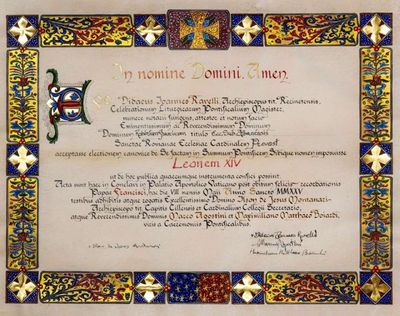 In nomine Domini. Amen
Ego Didacus Ioannes Ravelli, Archiepiscopus tit. Recinetensis,
Celebrationum Liturgicarum Pontificalium Magister,
munere notarii fungens, attestor et notum facio
Eminentissimum ac Reverendissimum Dominum
Dominum Robertum Franciscum titulo
Sanctae Romanae Ecclesiae Cardinalem Prevost
acceptasse electionem canonice de Se factam in Summum Pontificem Sibique nomen imposuisse
Leonem XIV
ut de hoc publica quaecumque instrumenta confici possint.
Acta sunt haec in Conclavi in Palatio Apostolico Vaticano post obitum felicis recordationis
Papae Francisci, hac die VIII mensis Maii Anno Sancto MMXXV
testibus adhibitis atque rogatis Excellentissimo Domino Ilson de Jesus Montanari
Archiepiscopo tit. Capitis Cillensis et Cardinalium Collegii Secretario,
atque Reverendissimis Dominis Marco Agostini et Maximiliano Matthaeo Boiardi,
viris a Caeremoniis Pontificalibus.